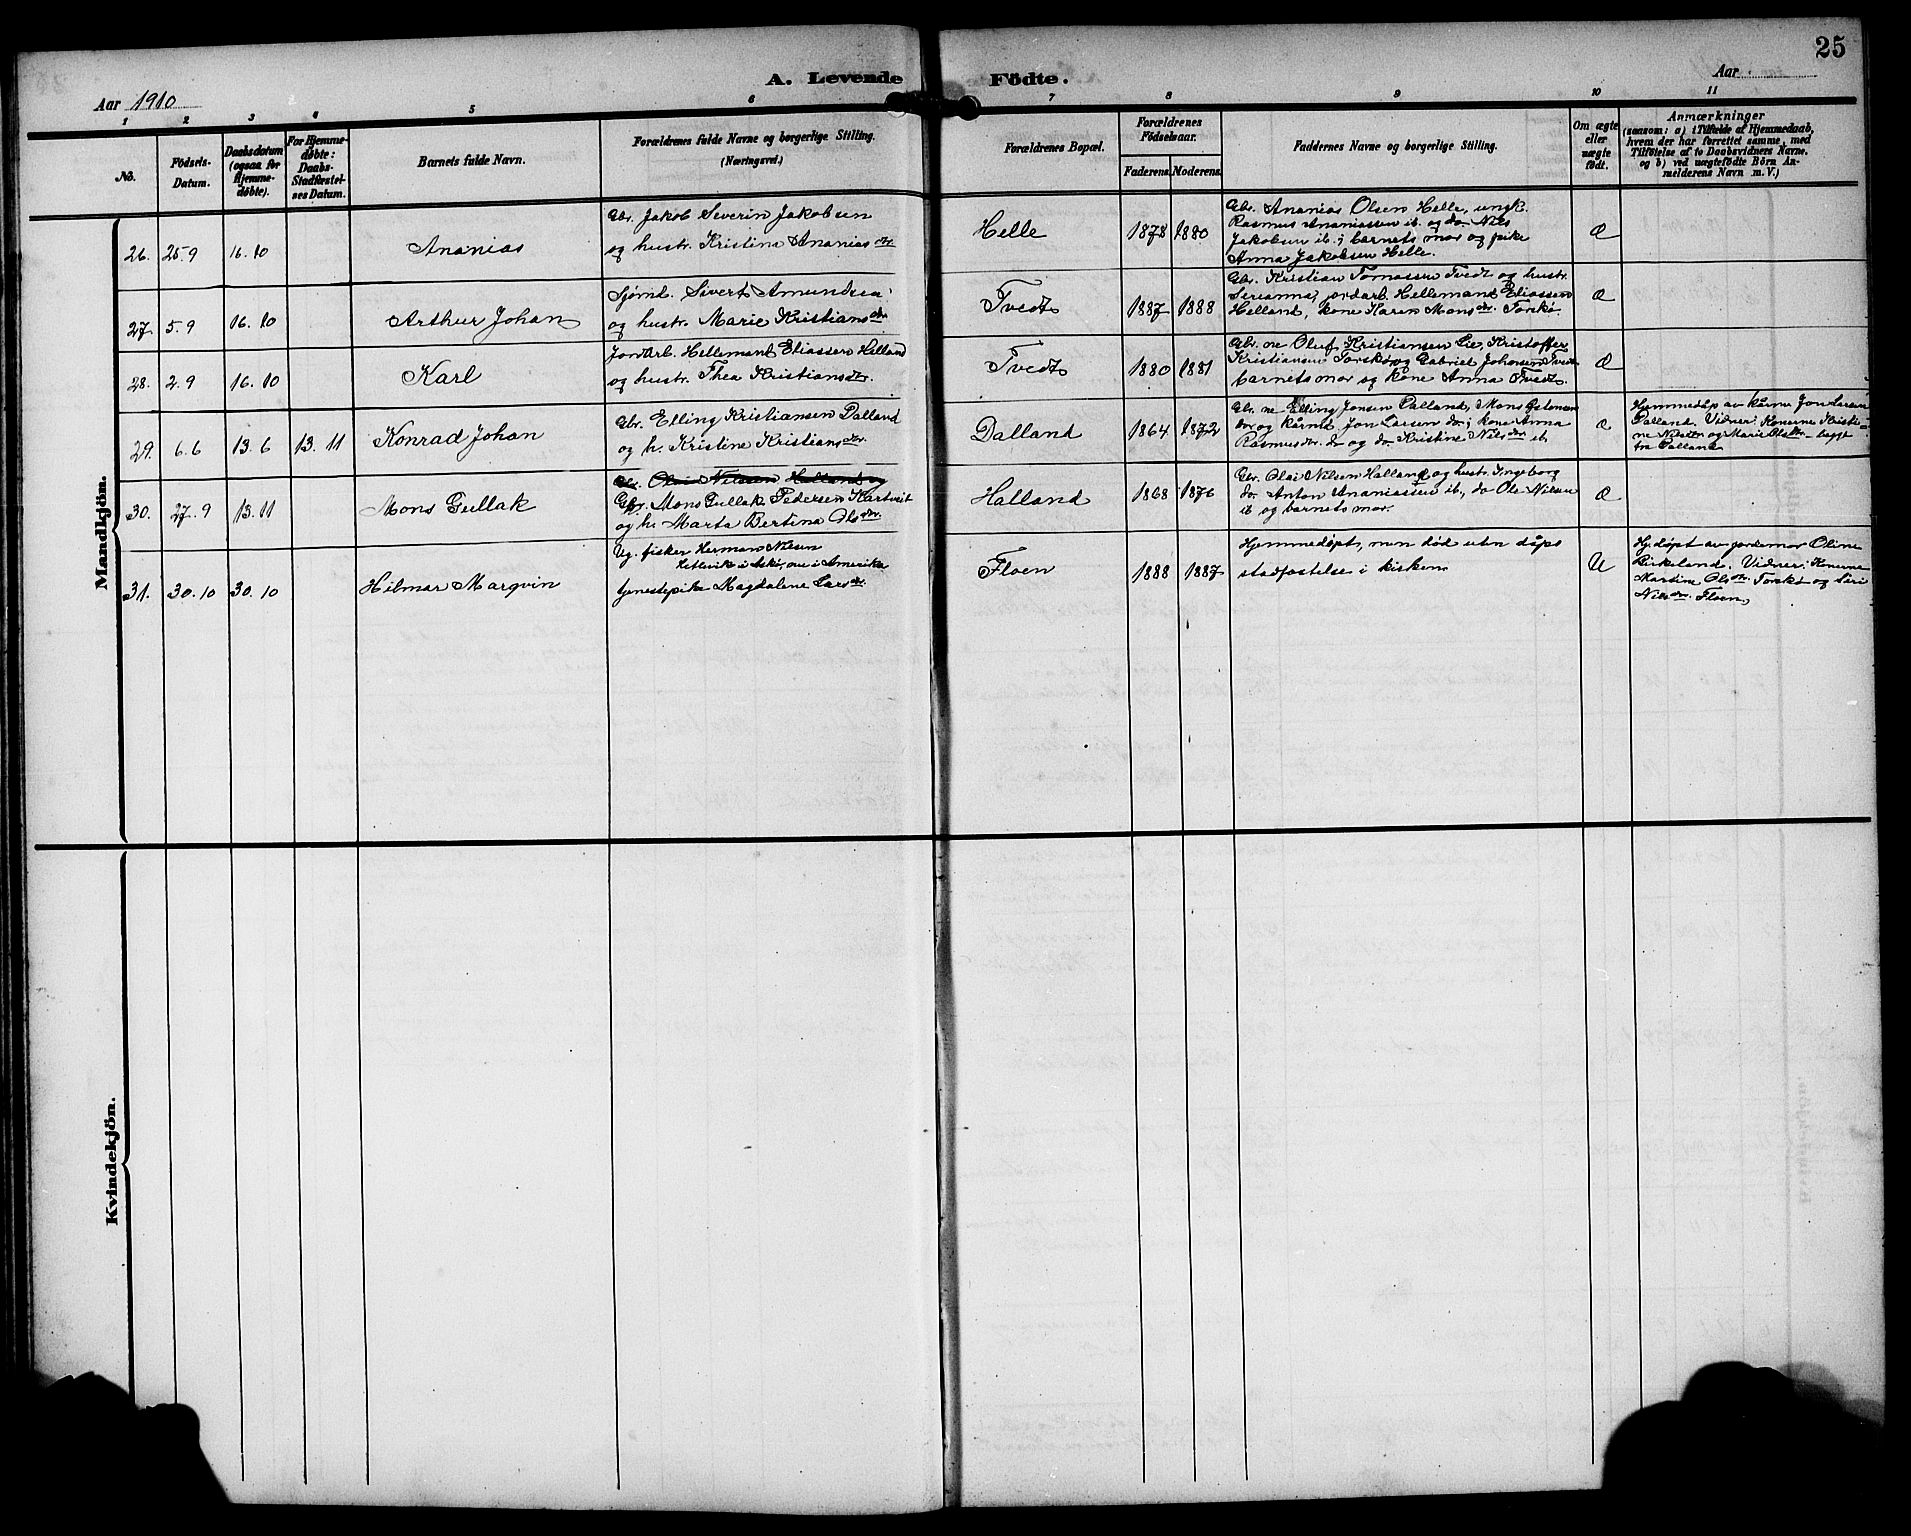 25
A. Levende Födte.
Aar 1910
Aar
1 2 3 4 5 6 7 8 9 10 11
No.
Födsels-
Datum.
Daabsdatum
(ogsaa for
Hjemme-
döbte).
For Hjemme-
döbte:
Daabs-
Stadfæstel-
ses Datum.
Barnets fulde Navn.
Forældrenes fulde Navne og borgerlige Stilling.
(Næringsvei.)
Forældrenes Bopæl.
Forældrenes
Födselsaar.
Faderens. Moderens.
Faddernes Navne og borgerlige Stilling.
Om ægte
eller
uægte
födt.
Anmærkninger
(saasom: a) i Tilfælde af Hjemmedaab,
hvem der har forrettet samme, med
Tilföielse af to Daabsvidners Navne.
og b) ved uægtefödte Börn An-
melderens Navn m. V.)
Mandkjön.
26. 25.9 16.10
Ananias
Gbr. Jakob Severin Jakobsen
og hustr. Kristina Ananiasdtr
Helle
1878 1880
Gbr. Ananias Olsen Helle, ungk.
Rasmus Ananiassen ib. og do Nils
Jakobsen ib.; barnets mor og pike
Anna Jakobsen Helle.
Æ
27. 5.9 16.10
Arthur Johan
Sjömd. Sivert Amundsen
og hustr. Marie Kristiansdtr
Tvedt
1887 1888
Gbr. Kristian Tomassen Tvedt og hustr.
Serianna, jordarb. Hellemand Eliassen
Helland, kone Karen Monsdtr. Torskö.
Æ
28. 2.9 16.10
Karl
Jordarb. Hellemand Eliassen Helland
og hustr. Thea Kristiansdtr.
Tvedt
1880 1881
Gbr.ne Oluf Kristiansen Lie, Kristoffer
Kristiansen Torskö og Gabriel Johansen Tvedt
barnets mor og kone Anna Tvedt.
Æ
29. 6.6 13.6 13.11
Konrad Johan
Gbr. Elling Kristiansen Dalland
og h. Kristine Kristiansdtr
Dalland
1864 1872
Gbr.ne Elling Jonsen Dalland, Mons
do og kårmd. Jon Larsen do; kone Anna
Rasmusdtr. do og do Kristine Nilsdtr ib
Æ
Hjemmedöp av kårm. Jon Larsen
Dalland. Vidner: Konerne Kristi-
ne Nilsdtr og Marie Olsdtr begge
fra Dalland
30. 27.9 13.11
Mons Gullak
Gbr. Olai Nilsen Halland og
Gbr. Mons Gullak Pedersen Kartveit
og h. Marta Bertina Olsdtr.
Halland
1868 1876
Gbr. Olai Nilsen Halland og hustr. Ingeborg
do. Anton Ananiassen ib., do Ole Nilsen
ib og barnets mor.
Æ
31. 30.10 30.10
Hilmar Margvin
Ug. fisker Herman Nilsen
i Askö, nu i Amerika
tjenestepike Magdalene Larsdtr.
Floen
1888 1887
Hjemmedöpt, men död uten dåps
stadfæstelse i kirken
U
Hj.döpt av jordemor Oline
Birkeland. Vidner: Konerne
Martine Olsdtr. Torskö og Siri
Nilsdtr. Floen.
Kvindekjön.